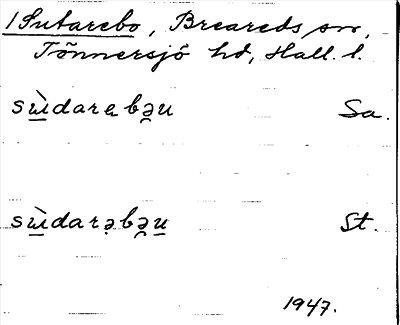 1 Sutarebo, Breareds sn,
Tönnersjö hd, Hall. l.
sɯ̲̀darabə̯u Sa.
sɯ̲̀darə̣bə̯u̲ St.
1947.